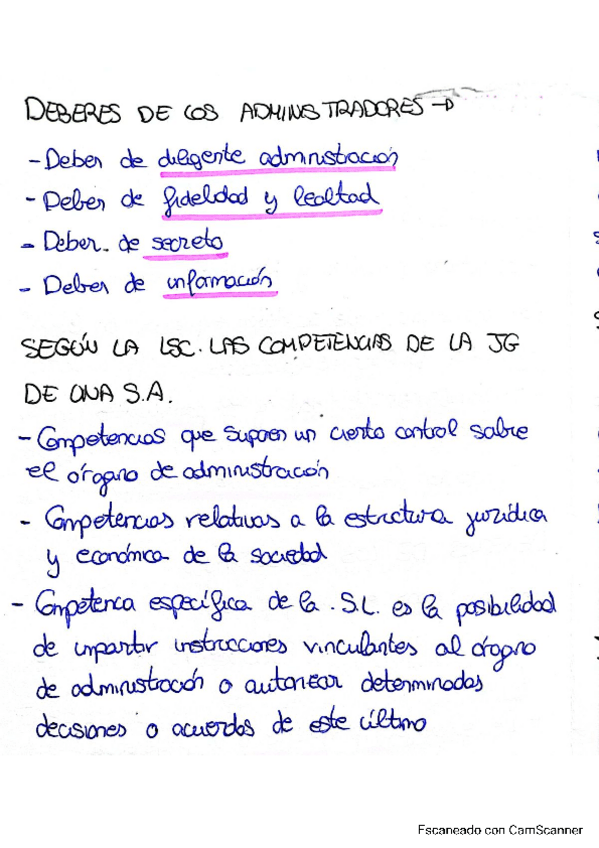 DEBERES DE LOS ADMINISTRADORES →
- Deber de diligente administración
- Deber de fidelidad y lealtad
- Deber de secreto
- Deber de información
SEGÚN LA LSC. LAS COMPETENCIAS DE LA JG
DE UNA S.A.
- Competencias que suponen un cierto control sobre
el órgano de administración
- Competencias relativas a la estructura jurídica
y económica de la sociedad
- Competencia específica de la S.L. es la posibilidad
de impartir instrucciones vinculantes al órgano
de administración o autorizar determinadas
decisiones o acuerdos de este último
Escaneado con CamScanner